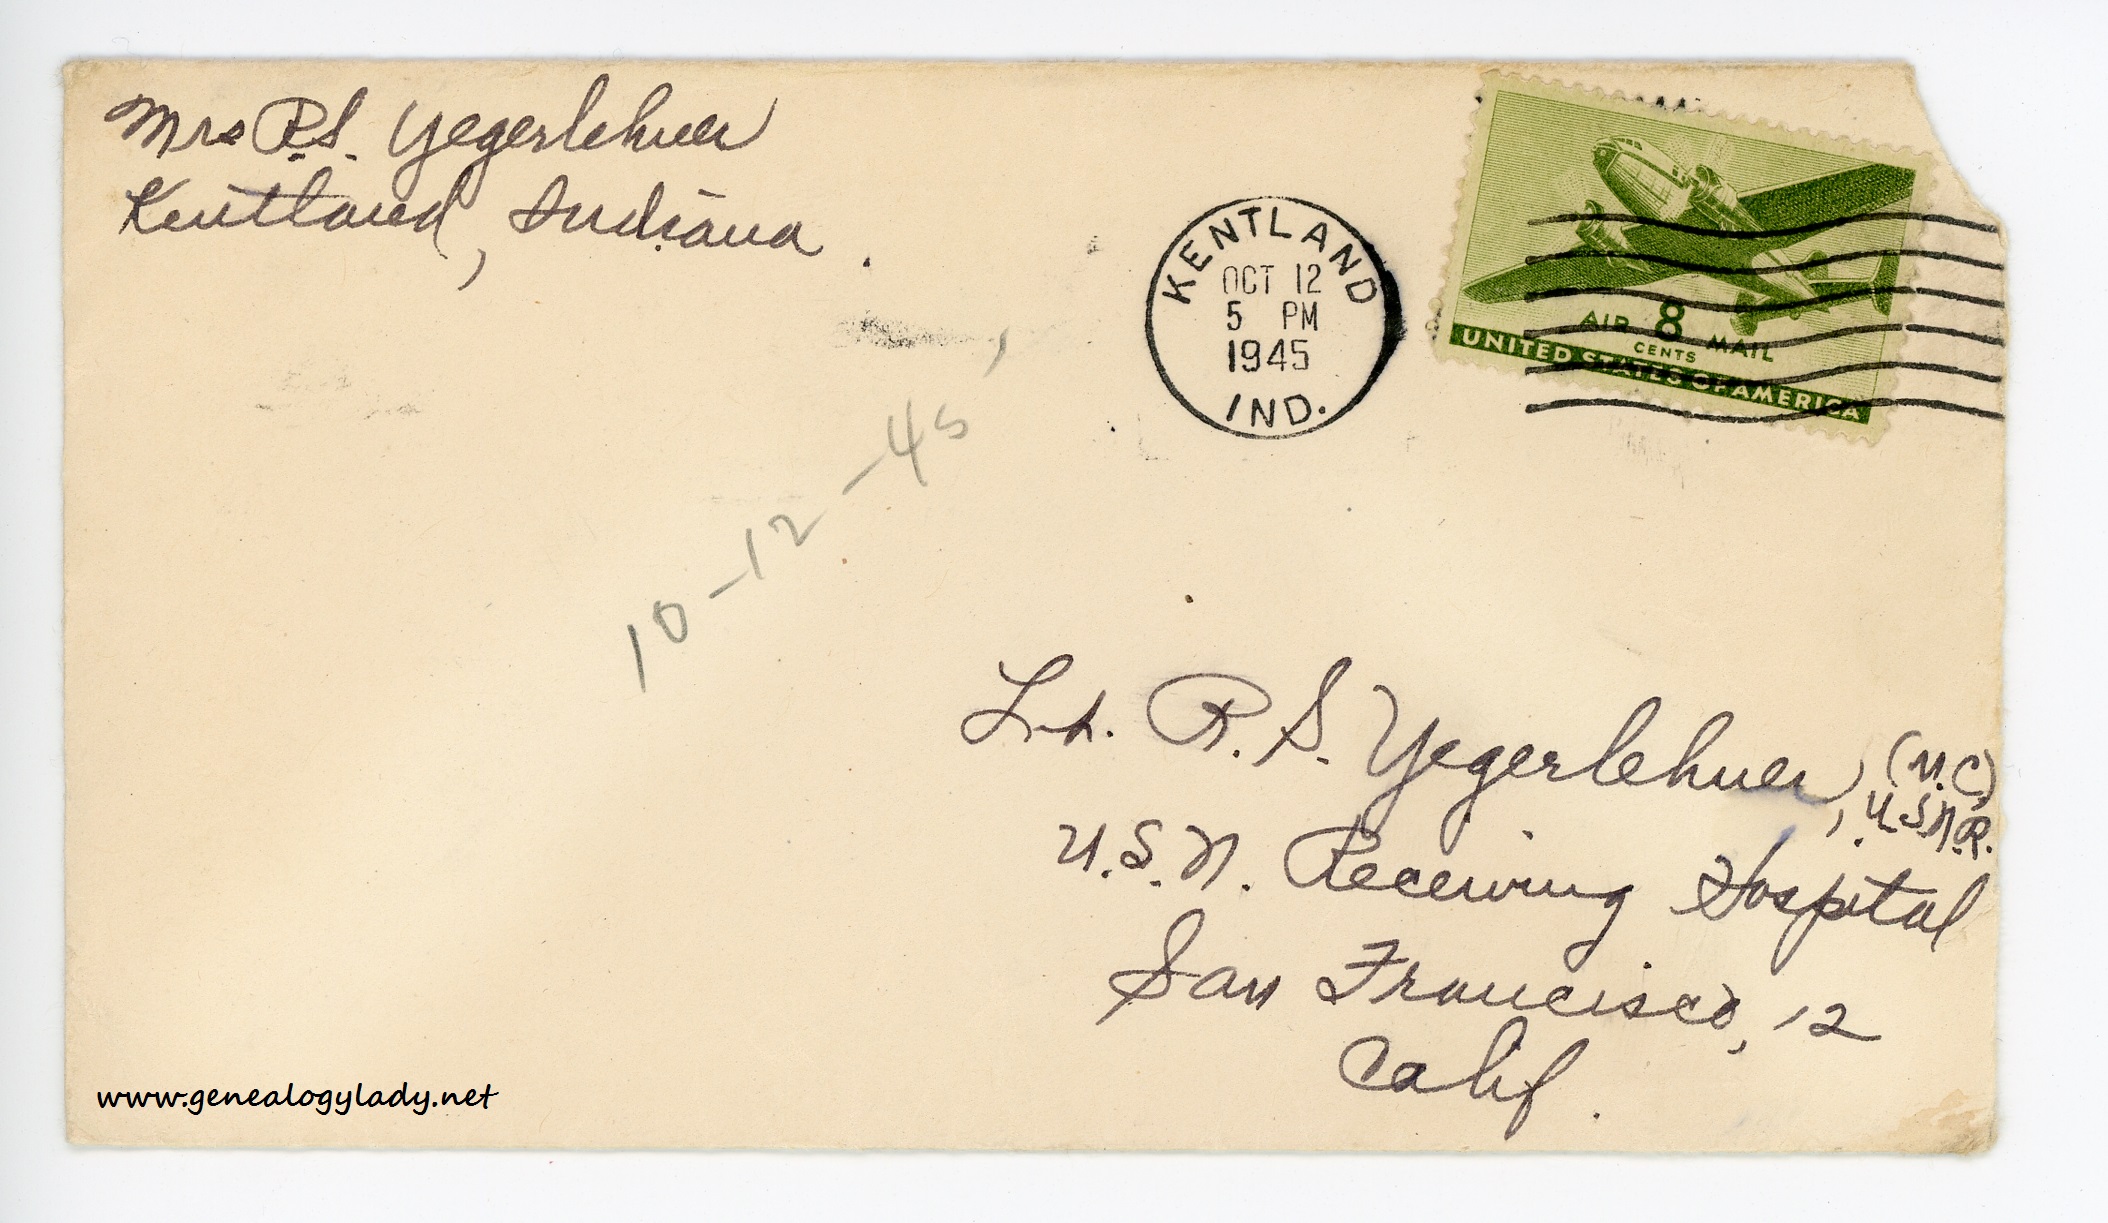 Mrs R.S. Yegerlehner
Kentland, Indiana.
KENTLAND
OCT 12
5 PM
1945
IND.
AIR 8 MAIL
CENTS
UNITED STATES OF AMERICA
10-12-45
Lt. R. S. Yegerlehner, (M.C)
U.S.N.R.
U.S.N. Receiving Hospital
San Francisco, 12
Calif.
www.genealogylady.net